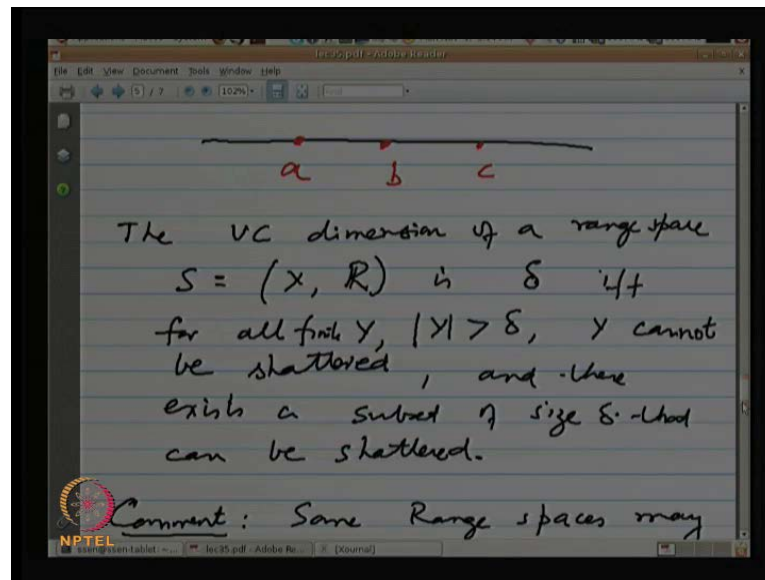 lec35.pdf - Adobe Reader
File Edit View Document Tools Window Help
5 / 7 102% Find
a b c
The VC dimension of a range space
S = (X, R) is δ iff
for all finite Y, |Y| > δ, Y cannot
be shattered, and there
exists a subset of size δ that
can be shattered.
Comment: Some Range spaces may
NPTEL
ssen@ssen-tablet: ~... lec35.pdf - Adobe Re... [Xournal]